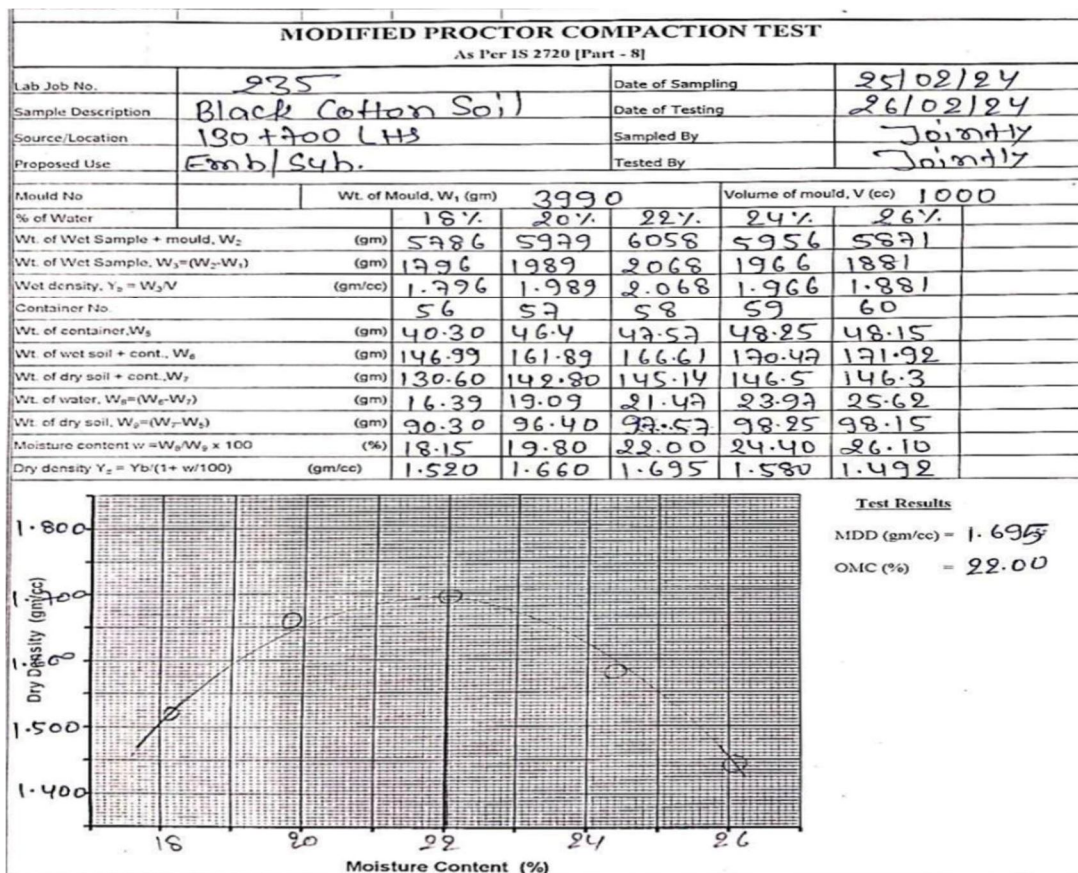 MODIFIED PROCTOR COMPACTION TEST
As Per IS 2720 [Part - 8]
Lab Job No. 235 Date of Sampling 25/02/24
Sample Description Black Cotton Soil Date of Testing 26/02/24
Source/Location 130+700 LHS Sampled By Jointly
Proposed Use Emb/Sub. Tested By Jointly
Mould No Wt. of Mould, W₁ (gm) 3990 Volume of mould, V (cc) 1000
% of Water 18% 20% 22% 24% 26%
Wt. of Wet Sample + mould, W₂ (gm) 5786 5979 6058 5956 5871
Wt. of Wet Sample, W₃=(W₂-W₁) (gm) 1796 1989 2068 1966 1881
Wet density, Yᵦ = W₃/V (gm/cc) 1.796 1.989 2.068 1.966 1.881
Container No. 56 57 58 59 60
Wt. of container,W₅ (gm) 40.30 46.4 47.57 48.25 48.15
Wt. of wet soil + cont., W₆ (gm) 146.99 161.89 166.61 170.47 171.92
Wt. of dry soil + cont.,W₇ (gm) 130.60 142.80 145.14 146.5 146.3
Wt. of water, W₈=(W₆-W₇) (gm) 16.39 19.09 21.47 23.97 25.62
Wt. of dry soil, W₉=(W₇-W₅) (gm) 90.30 96.40 97.57 98.25 98.15
Moisture content w =W₈/W₉ x 100 (%) 18.15 19.80 22.00 24.40 26.10
Dry density Y₂ = Yb/(1+ w/100) (gm/cc) 1.520 1.660 1.695 1.580 1.492
Test Results
MDD (gm/cc) = 1.695
OMC (%) = 22.00
Dry Density (gm/cc)
1.800
1.700
1.600
1.500
1.400
18 20 22 24 26
Moisture Content (%)